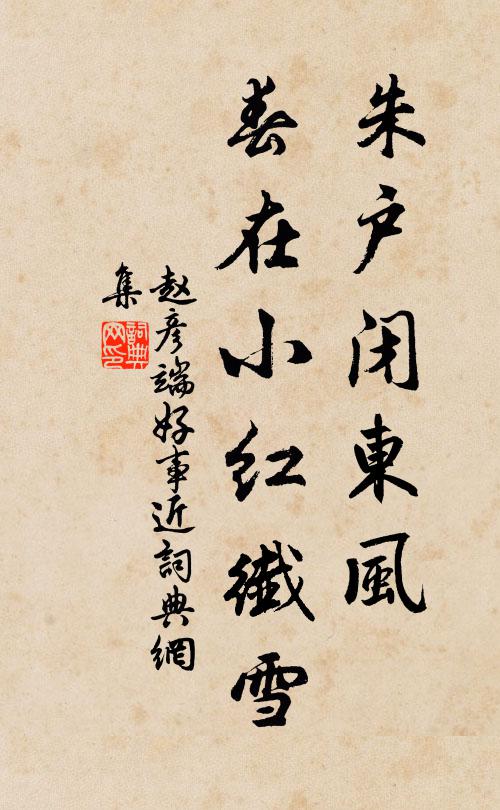 朱户闭東風
春在小红纖雪
赵彦端好事近詞典網
集
詞典網印